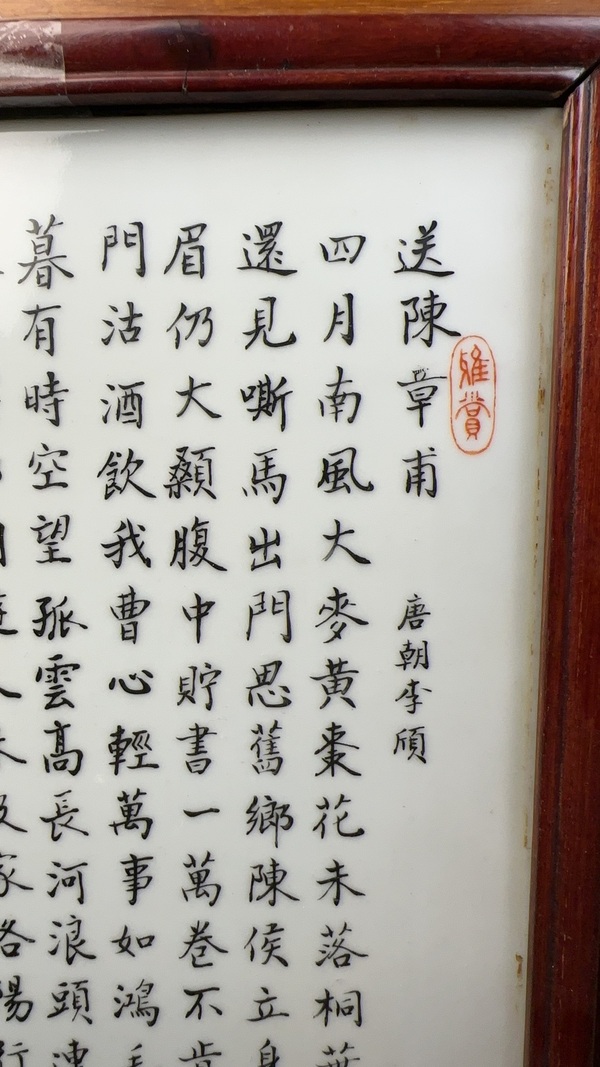 送陳章甫 唐朝李頎
雅賞
四月南風大麥黃棗花未落桐葉
還見嘶馬出門思舊鄉陳侯立身
眉仍大顙腹中貯書一萬卷不肯
門沽酒飲我曹心輕萬事如鴻毛
暮有時空望孤雲高長河浪頭連
人未及家洛陽行